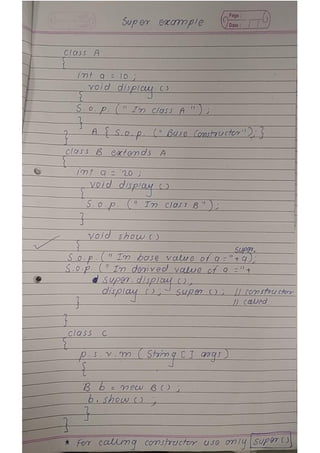 Super example
Page :
Date :
class A
{
int a = 10 ;
void display ()
{
S.o.p. (" In class A ") ;
}
A { S.o.p. (" Base Constructor"); }
}
class B extends A
{
int a = 20 ;
void display ()
{
S.o.p. (" In class B ") ;
}
void show ()
{
super.
S.o.p. (" Im base value of a = "+a);
S.o.p. (" In derived value of a = "+
super. display ();
display (); super (); // constructor
} // called
}
class C
{
p. s. v. m ( String [ ] args )
{
B b = new B () ;
b. show () ;
}
}
* For calling constructor use only super ()